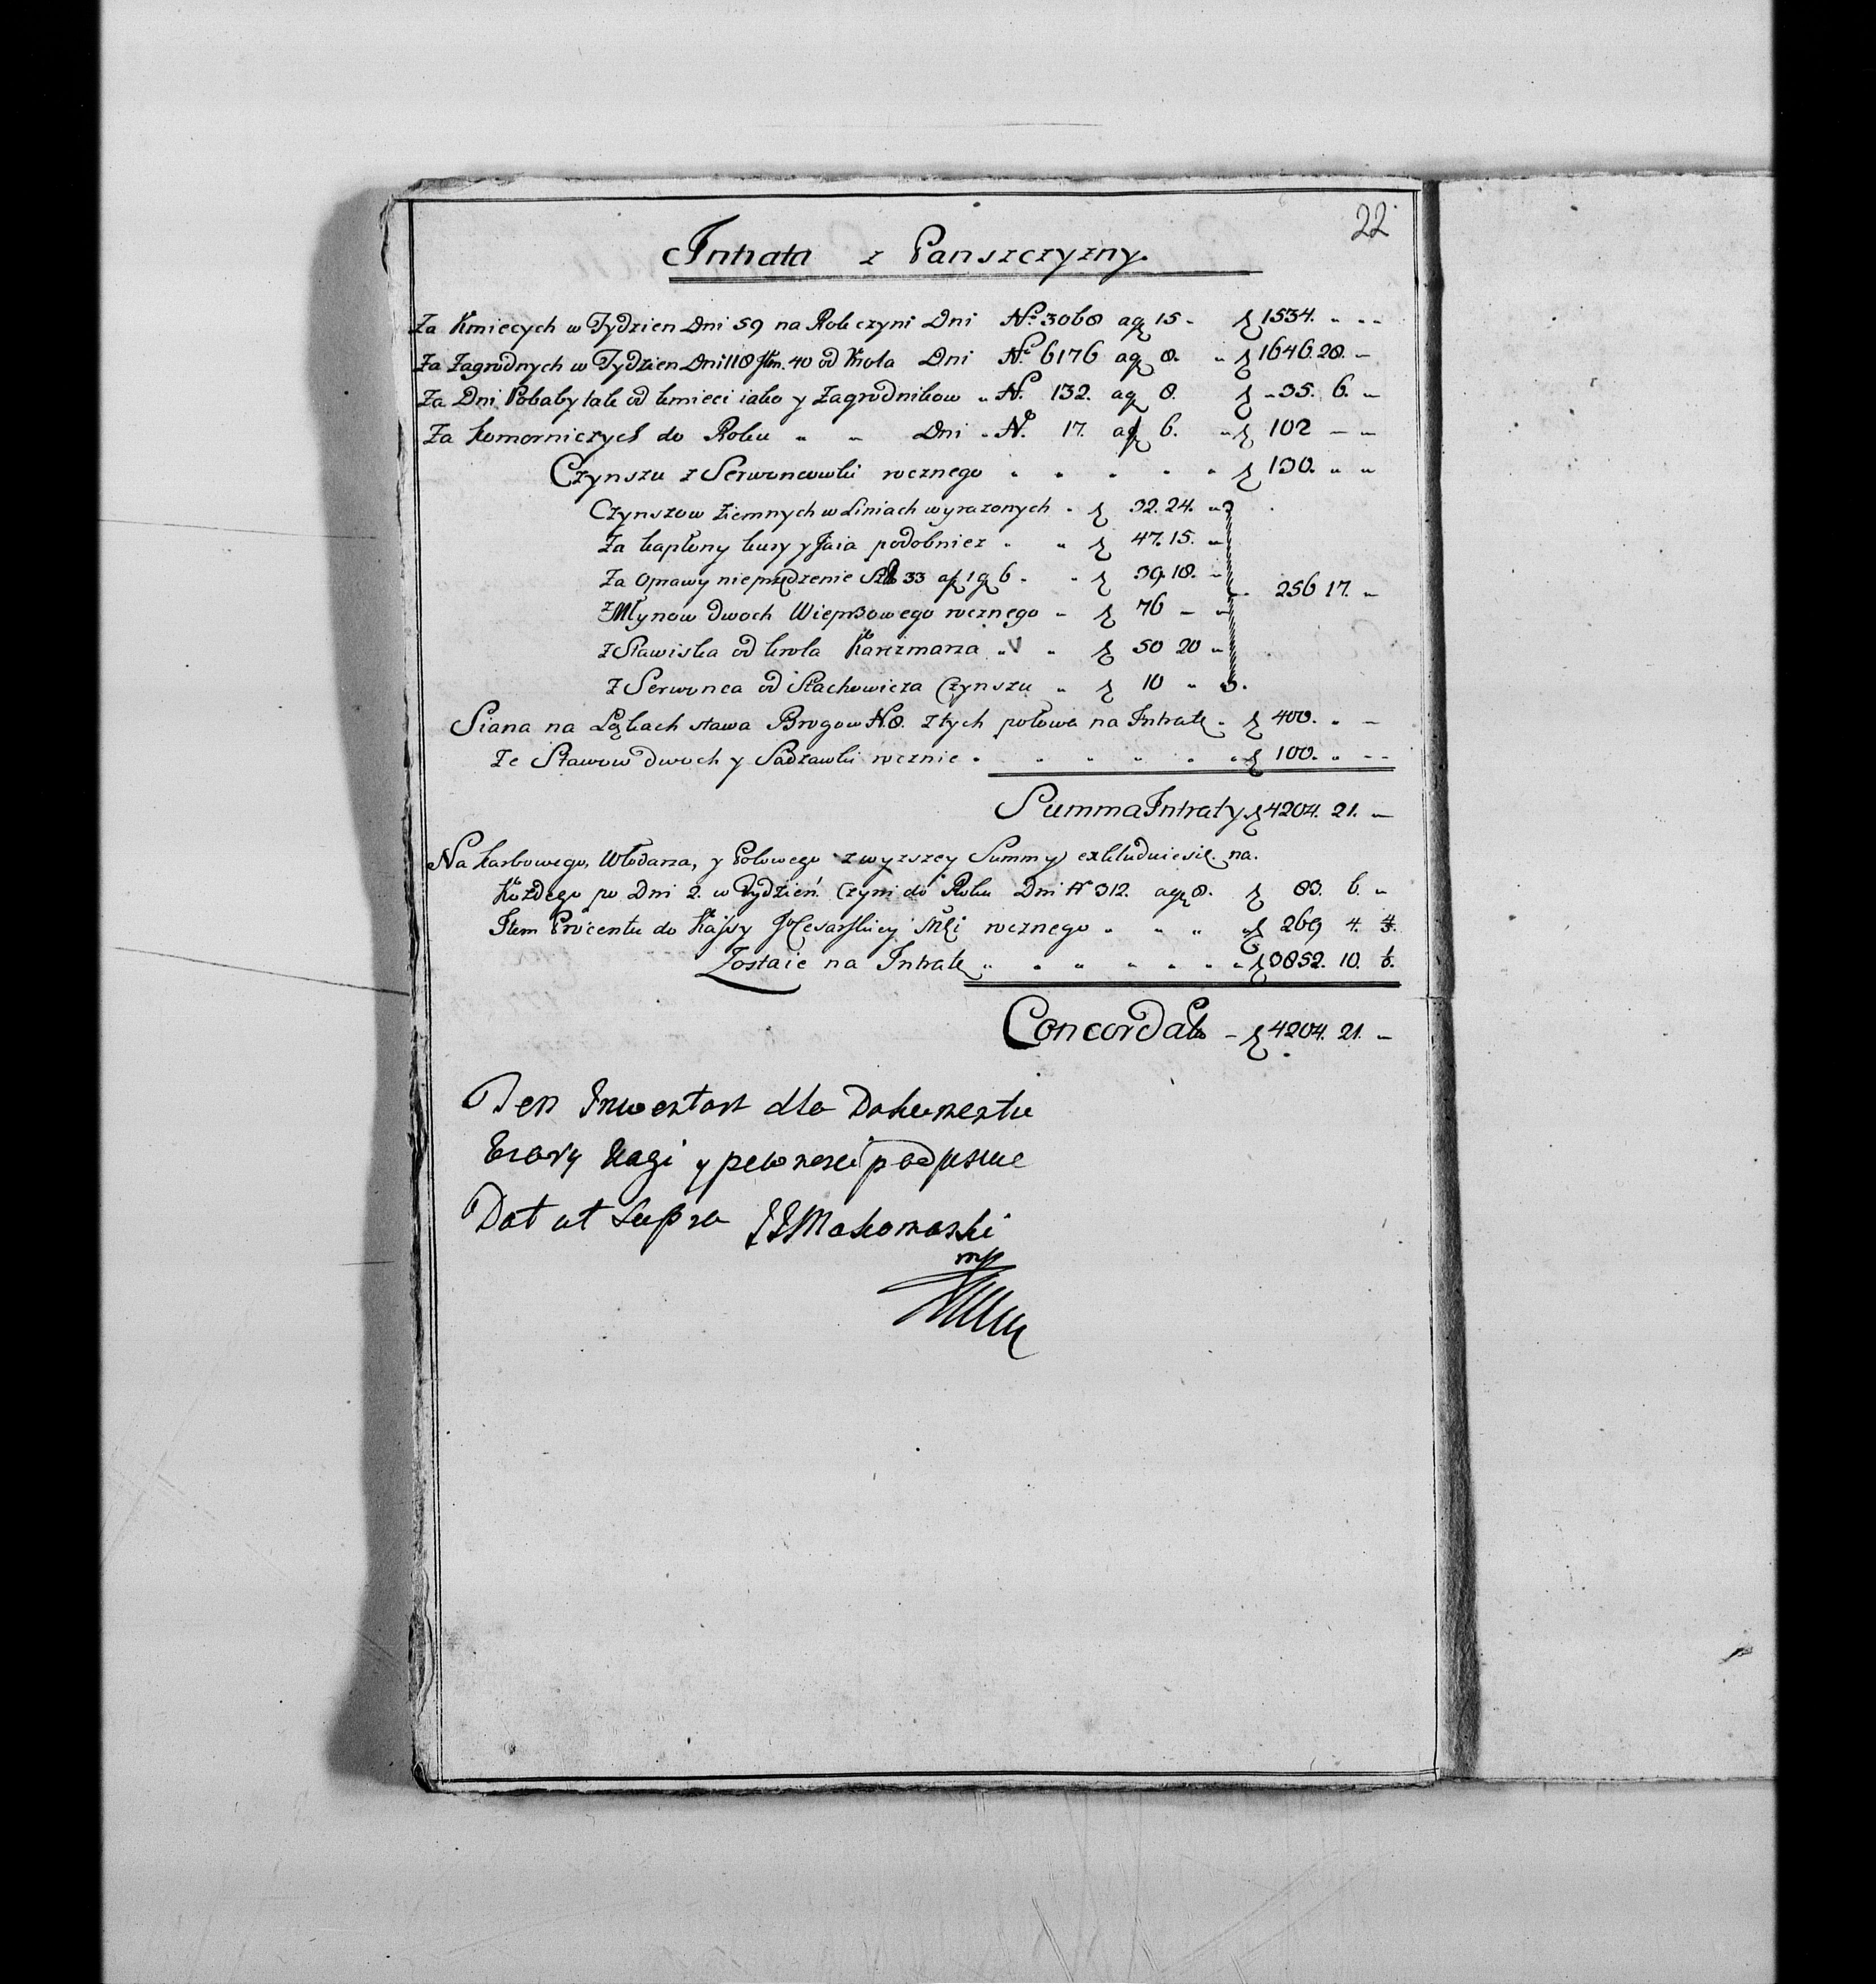 22
Intrata z Panszczyzny.
Za Kmiecych w Tydzien Dni 59 na Rok czyni Dni No. 3068 a g 15 - f 1534. " --
Za Zagrodnych w Tydzien Dni 118 40 od Krola Dni No. 6176 a g 8. " f 1646. 28. -
Za Dni Pobaby tak od kmieci iako y Zagrodnikow " N. 132. a g 8. f " 35. 6. "
Za komorniczych do Roku " " Dni " N. 17. a f 6. " f 102 - "
Czynszu z Serwoncowki rocznego " " " " " f 130. " "
Czynszow ziemnych w Liniach wyrazonych " f 32. 24. "
Za kapłony kury y Jaia podobniez " " f 47. 15. "
Za Oprawy nieprzędzenie Sztk 33 a f 1 g 6 " " f 39. 18. " 256 17. "
z Młynow dwoch Wieprzowego rocznego " f 76 - "
z Stawiska od krola Karczmarza " V " f 50 20 "
z Serwonca od Stachowicza Czynszu " f 10 "
Siana na Łąkach stawa Brogow N. 8. z tych połowa na Intratę " f 400. " -
Ze Stawow dwoch y Sadzawki rocznie " " " " " " f 100. " --
Summa Intraty f 4204. 21. -
Na karbowego, Włodarza, y Polowego z wyzszey Summy exkluduie się na.
Kożdego po Dni 2. w Tydzień. Czyni do Roku Dni N 312. a g 8. f 83. 6. "
Item Procentu do Kassy Cesarskiey rocznego " " " " f 269 4. 4.
Zostaie na Intratę " " " " " " " f 3852. 10. 6.
Concordat - f 4204. 21. -
Ten Inwentarz dla Dokumentu
Wagi y pewnosci podpisuie
Dat ut supra JJMakomaski
mp